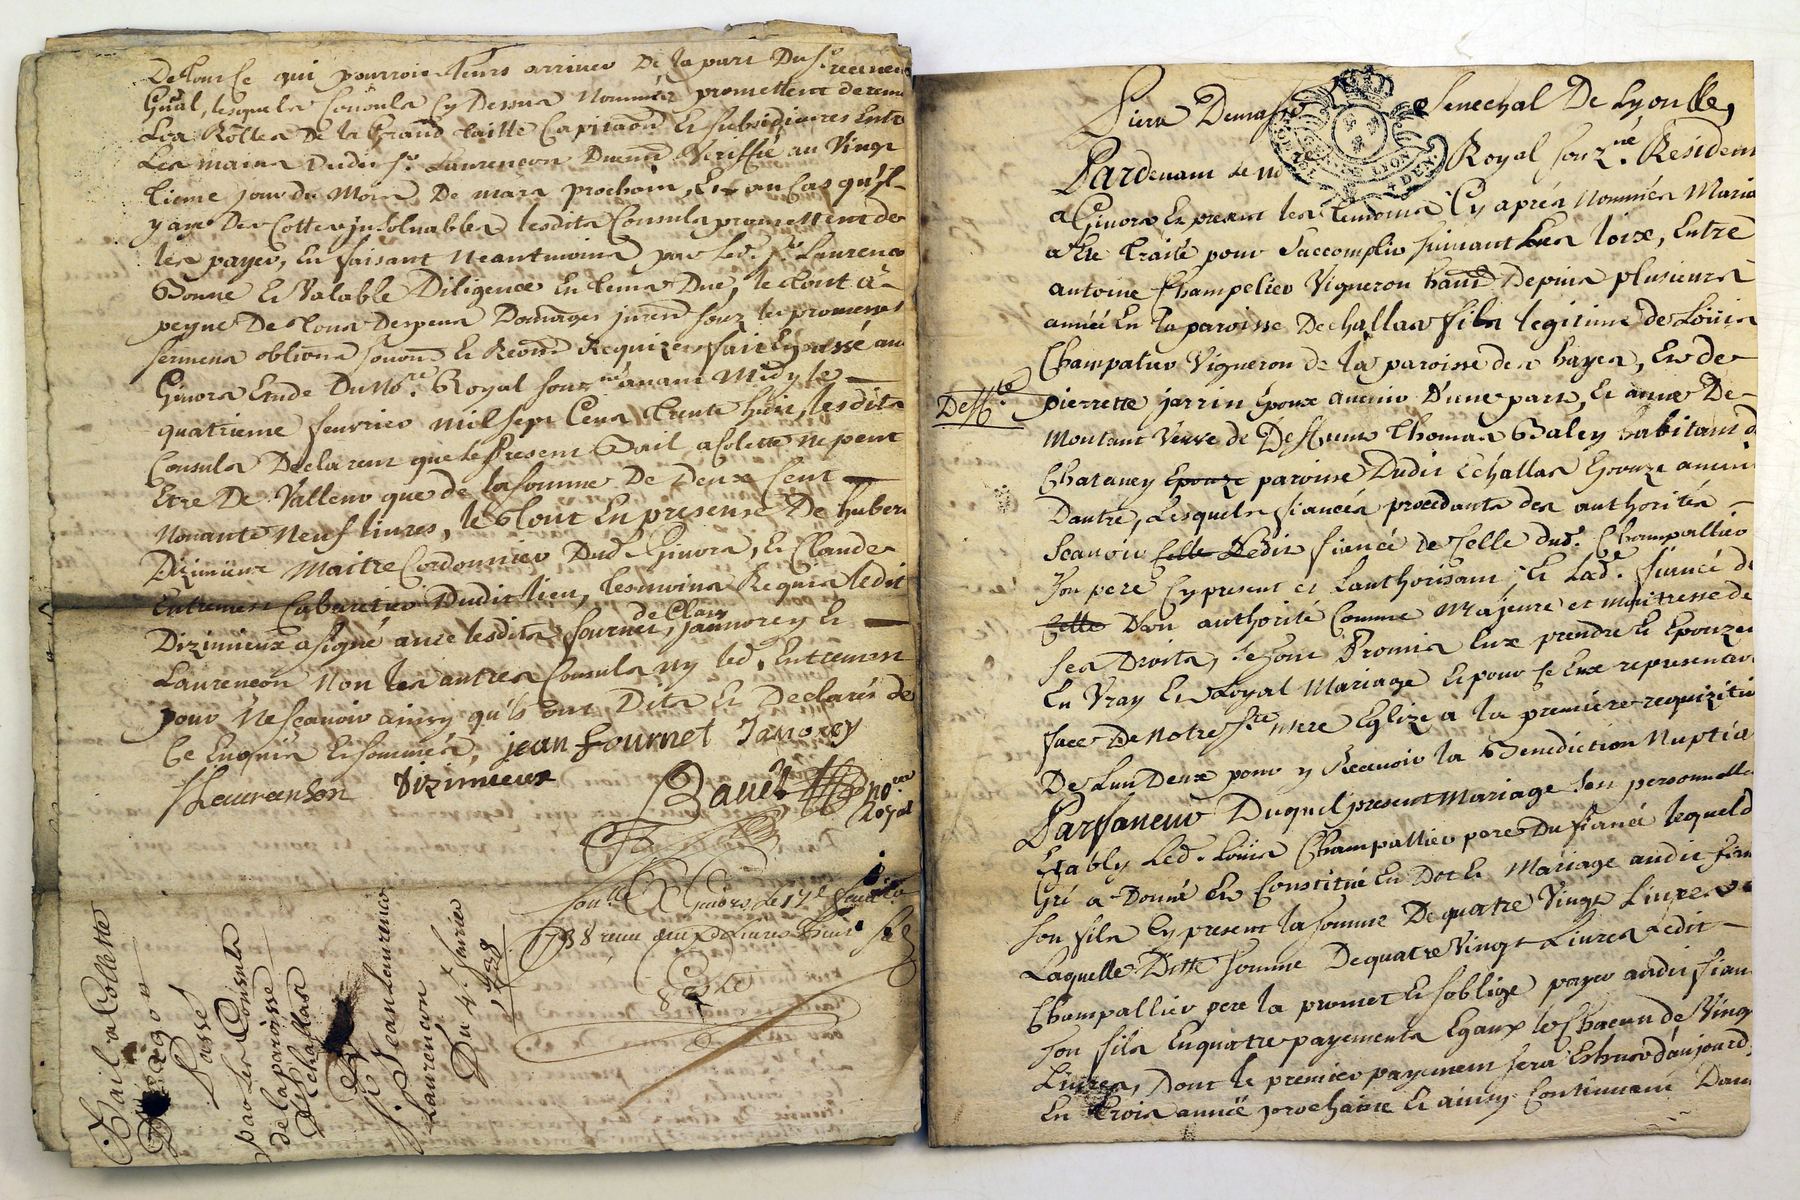 De tout ce qui pourroit leurs arriver De la part Du Sr receveur
Gñal, lesquels Consuls Cy Dessus Nommés promettent de remettre
Les Rolles De la Grand taille Capitaõn Et subsidiaires Entre
Les mains Dudit Sr. Laurencon Duemt Veriffié au Vingt
tieme jour du Mois De mars prochain, Et au Cas qu'il
y aye Des Cottes insolvables lesdits Consuls promettent de
les payer, En faisant Neantmoins par Led. Sr. Laurencon
Bonne Et Valable Diligence En tems Due, le tout a
peyne De tous Despens Domages
sermens obligõns Requizes fait Et passé au
Givors Etude Du Nore. Royal souzné avant Midy le
quatrieme fevrier Mil sept Cens trente huit, lesdits
Consuls Declarent que le present Bail a Colette Ne peut
Etre De Valleur que de la somme De Deux Cent
Nonante Neuf livres, le tout En presense De huber
Dizimieux Maitre Cordonnier Dud. Givors, Et Claude
Entremon Cabaretier Dudit lieu, tesmoins Requis ledit
Dizimieux a signé avec lesdits fournel, Jannorey Et
Laurencon Non les autres Consuls ny led. Entremont
pour Ne scavoir ainsy qu'ils ont Dits Et Declarés de
Ce Enquis Et sommés, jean fournel Janorey
Laurenson Dizimieux
Bauet nore
Royal
Conllé a Givors le 17e fevrier
1738 receu deux Livres huit s
Bail a Collette
Passé
par Les Consuls
de la paroisse
d'Echallas
A
Sr. Jean Laurencon
Laurencon
Du 4e. fevrier
1738
Senechal De Lyon
Pardevant le No Royal souzné. Resident
a Givors Et present les temoins Cy aprés Nommés Maria
a Eté traité pour S'accomplir suivant Les loix, Entre
antoine Champelier Vigneron habt Depuis plusieurs
année En la paroisse Dechallas fils legitime de Loüis
Champalier Vigneron de la paroisse des hayes, Et de
pierrette jarrin Epoux avenir D'une part, Et anne De
Montant Veuve de Deffunt Thomas Baley habitant d
Chatancy Epouze paroisse Dudit Echallas Epouze avenir
Dautre, Lesquels fiancés procedants des authorités
Scavoir Celle Ledit fiancé de Celle dud. Champallier
Son pere Cy present et Lauthorisant, Et Lad. fiancé de
Celle Son authorité Comme Majeure et maitresse de
ses Droits, se sont Promis Eux prendre Et Epouzer
En Vray Et Loyal Mariage Et pour Ce Eux representer
face De Notre Ste mere Eglize a la première requizition
De Lun Deux pour y Recevoir la Benediction Nuptia
Parfaneur Duquel present Mariage Sest personnelle
Etably Led. Loüis Champallier pere Du fiancé lequel d
Gré a Donné Et Constitué En Dot Et Mariage audit fian
Son fils Cy present la somme De quatre Vingt Livres
Laquelle Ditte somme De quatre Vingt Livres Ledit
Champallier pere la promet Et soblige payer audit fian
Son fils En quatre payements Egaux le Chacun de Vingt
Livres, Dont le premier payement sera Echus d'aujourd.
En trois année prochaine Et ainsy Continuant Dan